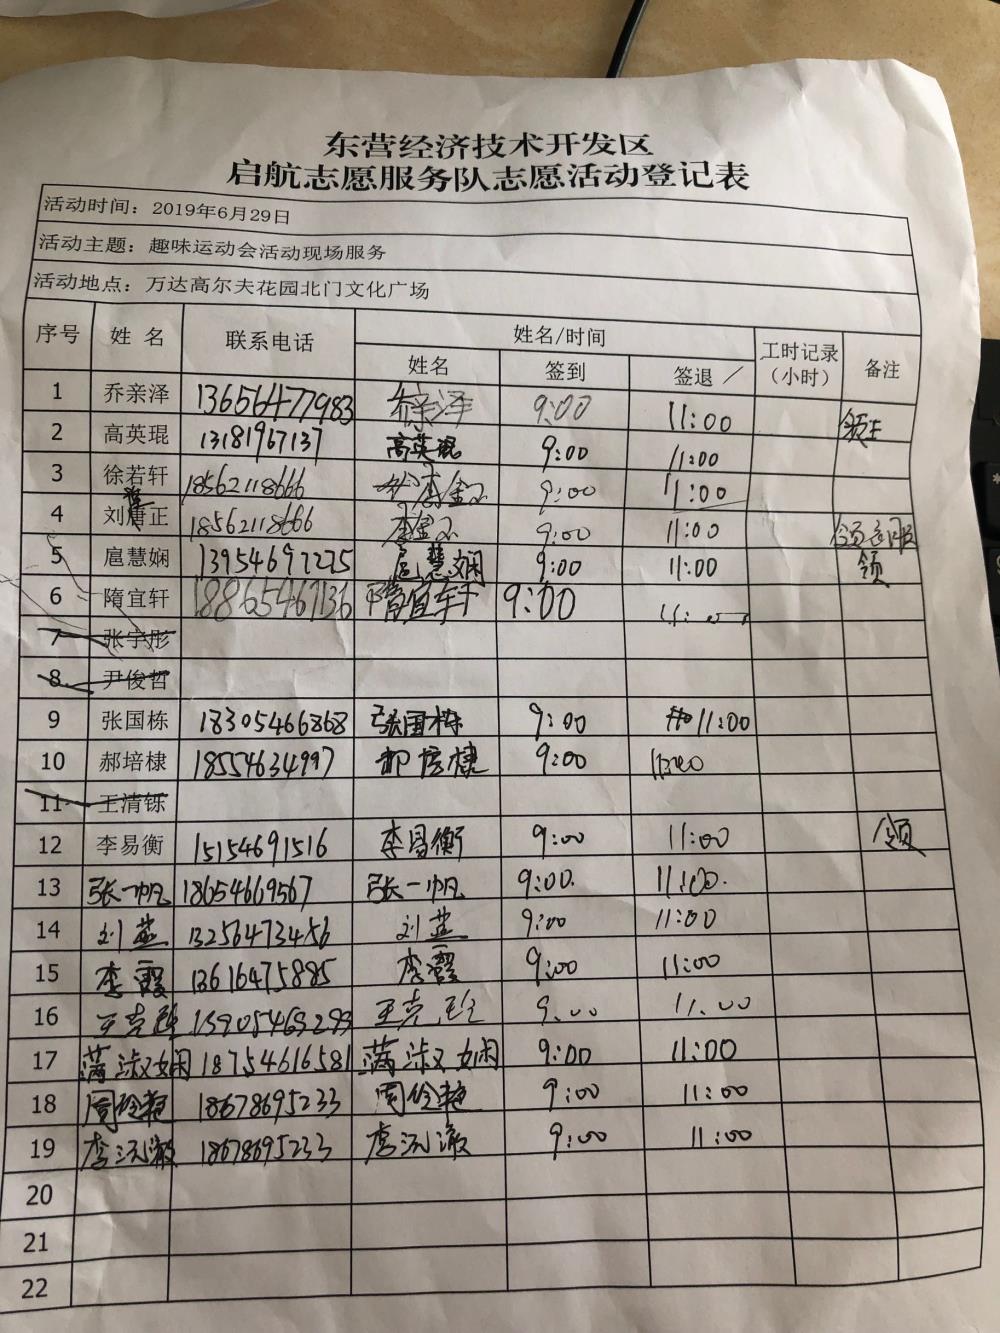 东营经济技术开发区
启航志愿服务队志愿活动登记表
活动时间：2019年6月29日
活动主题：趣味运动会活动现场服务
活动地点：万达高尔夫花园北门文化广场
序号 姓 名 联系电话 姓名/时间 工时记录（小时） 备注
姓名 签到 签退
1 乔亲泽 13656477983 乔亲泽 9:00 11:00
2 高英琨 13181967137 高英琨 9:00 11:00
3 徐若轩 18562118666 9:00 11:00
4 刘唐正 18562118666 9:00 11:00
5 扈慧娴 13954697225 扈慧娴 9:00 11:00 领
6 隋宜轩 18865467136 隋宜轩 9:00
7 张宇彤
8 尹俊哲
9 张国栋 18305466868 张国栋 9:00 11:00
10 郝培棣 18554634997 郝培棣 9:00
11 王清铄
12 李易衡 15154691516 李易衡 9:00 11:00 领
13 张一帆 18654669567 张一帆 9:00. 11:00.
14 刘燕 13256473456 刘燕 9:00 11:00
15 李霞 13616475885 李霞 9:00 11:00
16 王克珍 15905469293 王克珍 9:00 11:00
17 满淑娴 18754616581 满淑娴 9:00 11:00
18 18678695233 9:00 11:00
19 李沅澈 18678695233 李沅澈 9:00 11:00
20
21
22